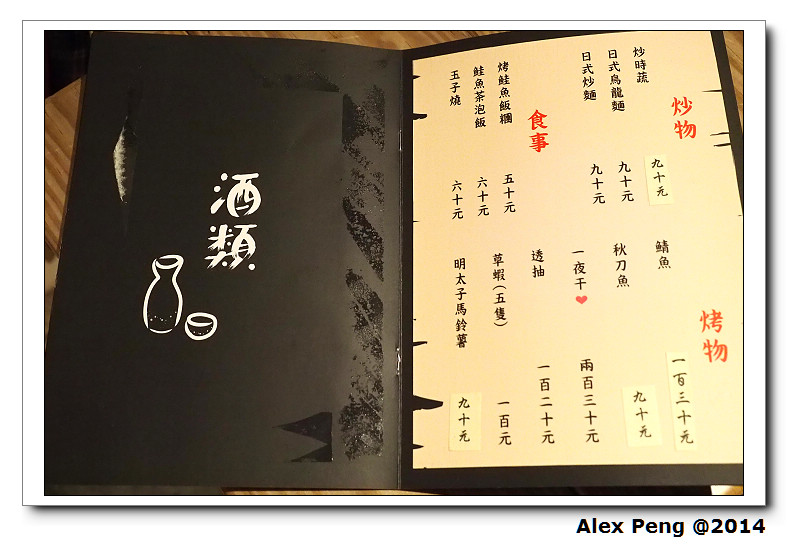 酒類
炒物
炒時蔬 九十元
日式烏龍麵 九十元
日式炒麵 九十元
食事
烤鮭魚飯糰 五十元
鮭魚茶泡飯 六十元
玉子燒 六十元
烤物
鯖魚 一百三十元
秋刀魚 九十元
一夜干❤ 兩百三十元
透抽 一百二十元
草蝦(五隻) 一百元
明太子馬鈴薯 九十元
Alex Peng @2014